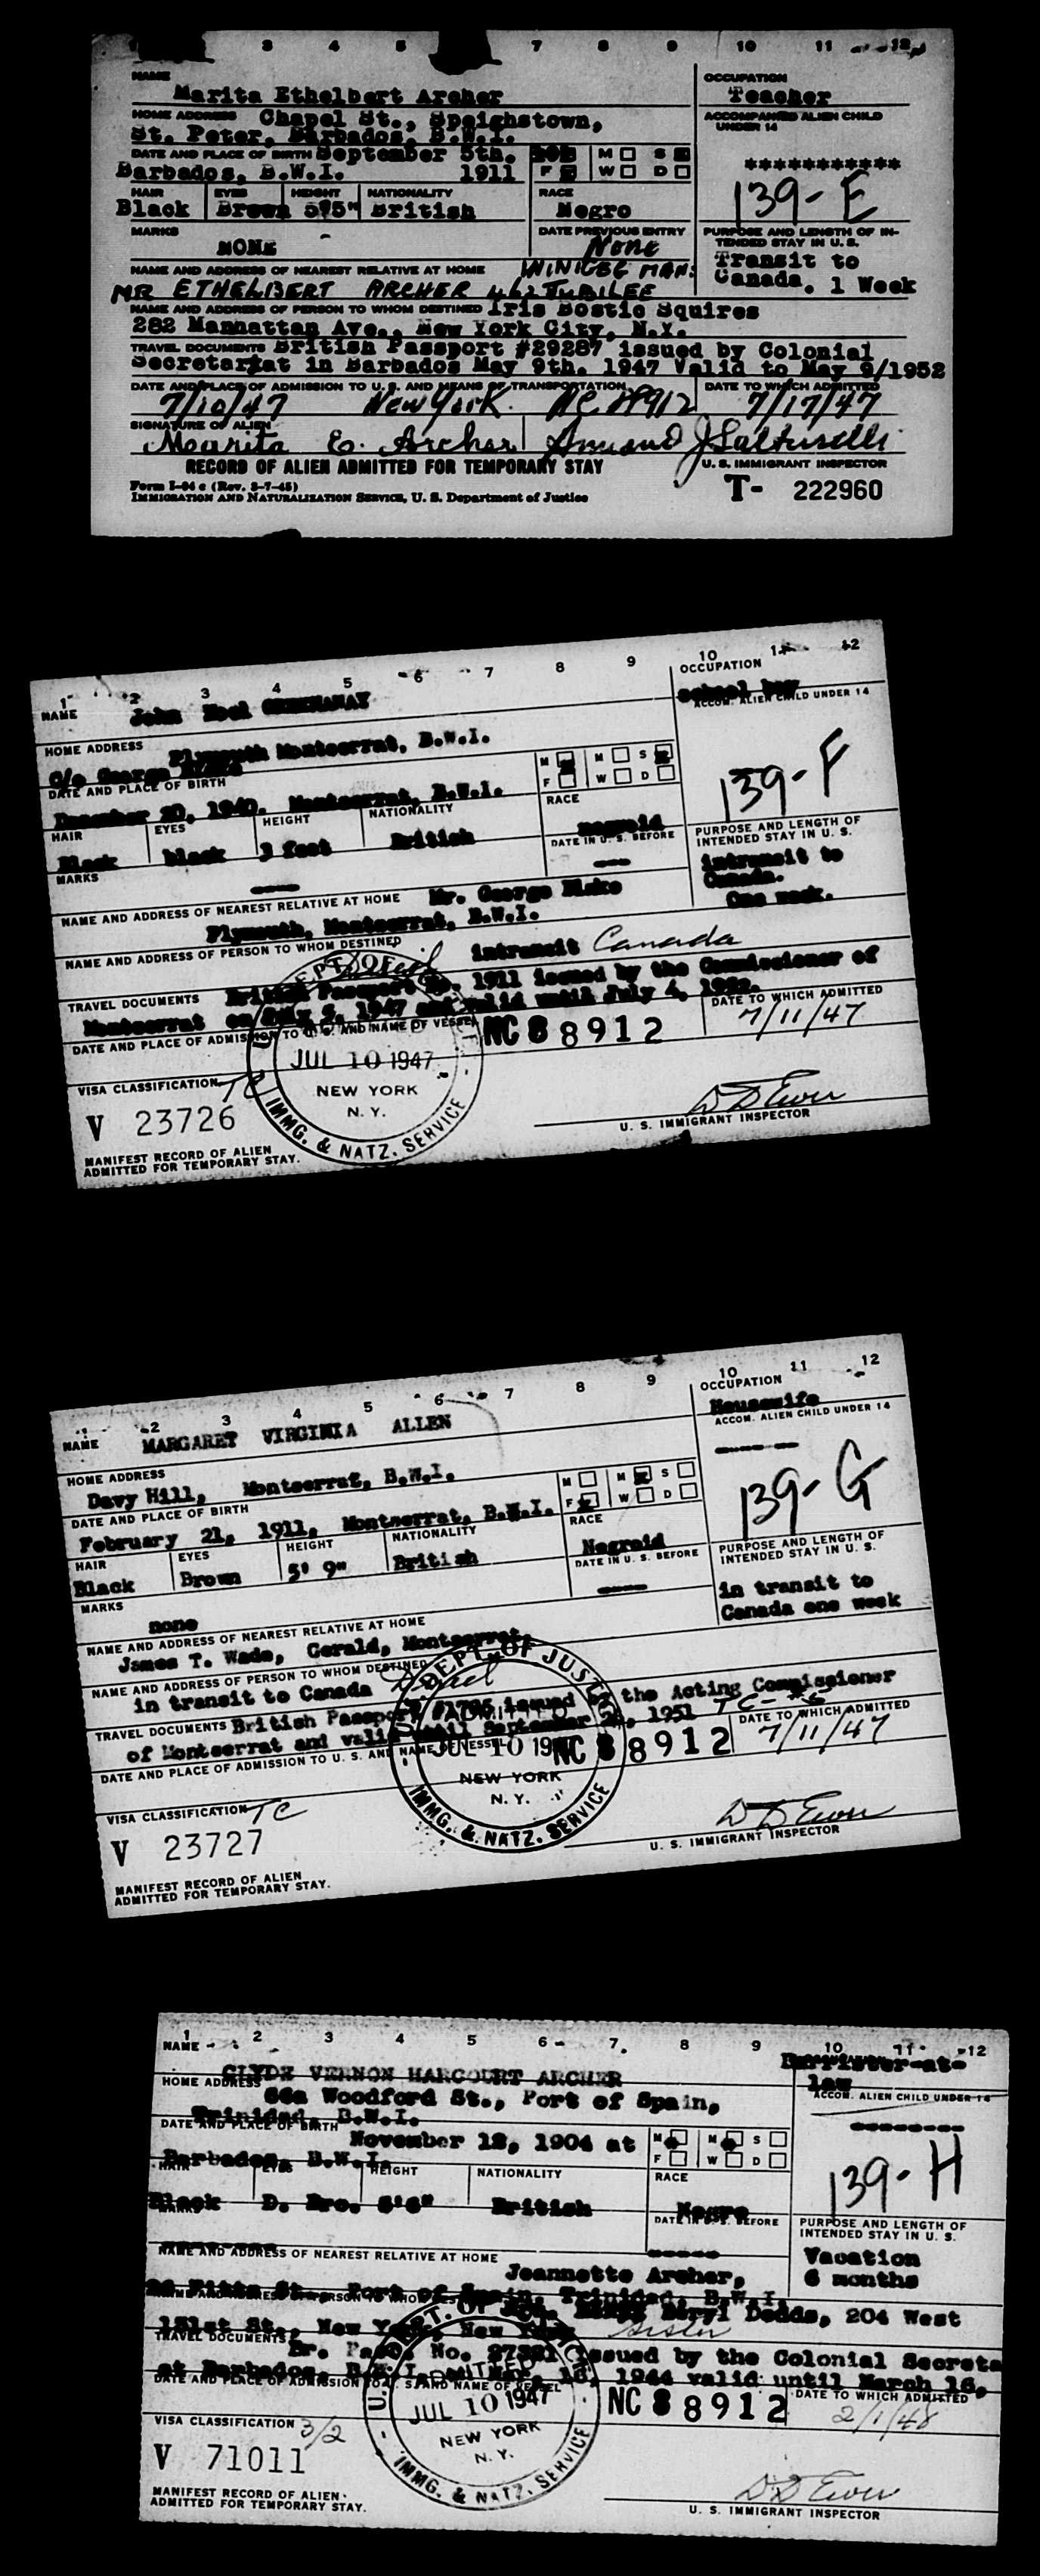 3 4 5 7 8 9 10 11 12
NAME
Marita Ethelbert Archer
OCCUPATION
Teacher
HOME ADDRESS Chapel St., Speighstown,
St. Peter, Barbados, B.W.I.
ACCOMPANIED ALIEN CHILD
UNDER 14
***********
DATE AND PLACE OF BIRTH September 5th.
Barbados, B.W.I. 1911
M S
F W D
139-E
HAIR EYES HEIGHT NATIONALITY RACE
Black Brown 5'5" British Negro
MARKS
NONE
DATE PREVIOUS ENTRY
None
PURPOSE AND LENGTH OF IN-
TENDED STAY IN U. S.
Transit to
Canada. 1 Week
NAME AND ADDRESS OF NEAREST RELATIVE AT HOME WINIGEG MAN:
MR ETHELBERT ARCHER 462 JUBILEE
NAME AND ADDRESS OF PERSON TO WHOM DESTINED Iris Bostic Squires
282 Manhattan Ave., New York City, N.Y.
TRAVEL DOCUMENTS British Passport #29287 issued by Colonial
Secretariat in Barbados May 9th. 1947 Valid to May 9/1952
DATE AND PLACE OF ADMISSION TO U. S. AND MEANS OF TRANSPORTATION DATE TO WHICH ADMITTED
7/10/47 New York NC 88912 7/17/47
SIGNATURE OF ALIEN
Marita E. Archer
RECORD OF ALIEN ADMITTED FOR TEMPORARY STAY
U. S. IMMIGRANT INSPECTOR
Form I-94 c (Rev. 3-7-45)
IMMIGRATION AND NATURALIZATION SERVICE, U. S. Department of Justice
T- 222960
1 2 3 4 5 6 7 8 9 10 11 12
NAME John Noel GREENAWAY
OCCUPATION
School boy
ACCOM. ALIEN CHILD UNDER 14
HOME ADDRESS Plymouth Montserrat, B.W.I.
c/o George
DATE AND PLACE OF BIRTH
December 20, 1940. Montserrat, B.W.I.
M M S
F W D
139-F
HAIR EYES HEIGHT NATIONALITY RACE
Black black 3 feet British negroid
MARKS
DATE IN U. S. BEFORE
PURPOSE AND LENGTH OF
INTENDED STAY IN U. S.
intransit to
Canada.
One week.
NAME AND ADDRESS OF NEAREST RELATIVE AT HOME Mr. George Blake
Plymouth, Montserrat, B.W.I.
NAME AND ADDRESS OF PERSON TO WHOM DESTINED intransit Canada
TRAVEL DOCUMENTS British Passport No. 1911 issued by the Commissioner of
Montserrat on July 5, 1947 and valid until July 4, 1952.
DATE AND PLACE OF ADMISSION TO U. S. AND NAME OF VESSEL
NC 88912
DATE TO WHICH ADMITTED
7/11/47
DEPT. OF
JUL 10 1947
NEW YORK
N. Y.
IMMG. & NATZ. SERVICE
VISA CLASSIFICATION TC
V 23726
D D Ewen
U. S. IMMIGRANT INSPECTOR
MANIFEST RECORD OF ALIEN
ADMITTED FOR TEMPORARY STAY.
1 2 3 4 5 6 7 8 9 10 11 12
NAME MARGARET VIRGINIA ALLEN
OCCUPATION
Housewife
ACCOM. ALIEN CHILD UNDER 14
HOME ADDRESS
Davy Hill, Montserrat, B.W.I.
DATE AND PLACE OF BIRTH
February 21, 1911, Montserrat, B.W.I.
M M S
F W D
139-G
HAIR EYES HEIGHT NATIONALITY RACE
Black Brown 5' 9" British Negroid
MARKS
none
DATE IN U. S. BEFORE
PURPOSE AND LENGTH OF
INTENDED STAY IN U. S.
in transit to
Canada one week
NAME AND ADDRESS OF NEAREST RELATIVE AT HOME
James T. Wade, Gerald, Montserrat.
NAME AND ADDRESS OF PERSON TO WHOM DESTINED
in transit to Canada
TRAVEL DOCUMENTS British Passport #1795 issued by the Acting Commissioner
of Montserrat and valid until September 1951
DATE AND PLACE OF ADMISSION TO U. S. AND NAME OF VESSEL
NC 88912
DATE TO WHICH ADMITTED
7/11/47
DEPT. OF JUSTICE
ADMITTED
JUL 10 1947
NEW YORK
N. Y.
IMMG. & NATZ. SERVICE
VISA CLASSIFICATION TC
V 23727
D D Ewen
U. S. IMMIGRANT INSPECTOR
MANIFEST RECORD OF ALIEN
ADMITTED FOR TEMPORARY STAY.
1 2 3 4 5 6 7 8 9 10 11 12
NAME
CLYDE VERNON HARCOURT ARCHER
Barrister-at-
law
ACCOM. ALIEN CHILD UNDER 14
HOME ADDRESS
66a Woodford St., Port of Spain,
Trinidad, B.W.I.
DATE AND PLACE OF BIRTH
November 12, 1904 at
Barbados, B.W.I.
M M S
F W D
139-H
HAIR EYES HEIGHT NATIONALITY RACE
Black D. Bro. 5'6" British Negro
MARKS
DATE IN U. S. BEFORE
PURPOSE AND LENGTH OF
INTENDED STAY IN U. S.
Vacation
6 months
NAME AND ADDRESS OF NEAREST RELATIVE AT HOME
Jeannette Archer,
Pitts St., Port of Spain, Trinidad, B.W.I.
NAME AND ADDRESS OF PERSON TO WHOM DESTINED
Beryl Dodds, 204 West
131st St., New York, New York Sister
TRAVEL DOCUMENTS
Br. Pass. No. 27321 issued by the Colonial Secreta
at Barbados, B.W.I. 1944 valid until March 16,
DATE AND PLACE OF ADMISSION TO U. S. AND NAME OF VESSEL
NC 88912
DATE TO WHICH ADMITTED
2/1/48
ADMITTED
JUL 10 1947
NEW YORK
N. Y.
IMMG. & NATZ. SERVICE
VISA CLASSIFICATION 3/2
V 71011
D D Ewen
U. S. IMMIGRANT INSPECTOR
MANIFEST RECORD OF ALIEN
ADMITTED FOR TEMPORARY STAY.